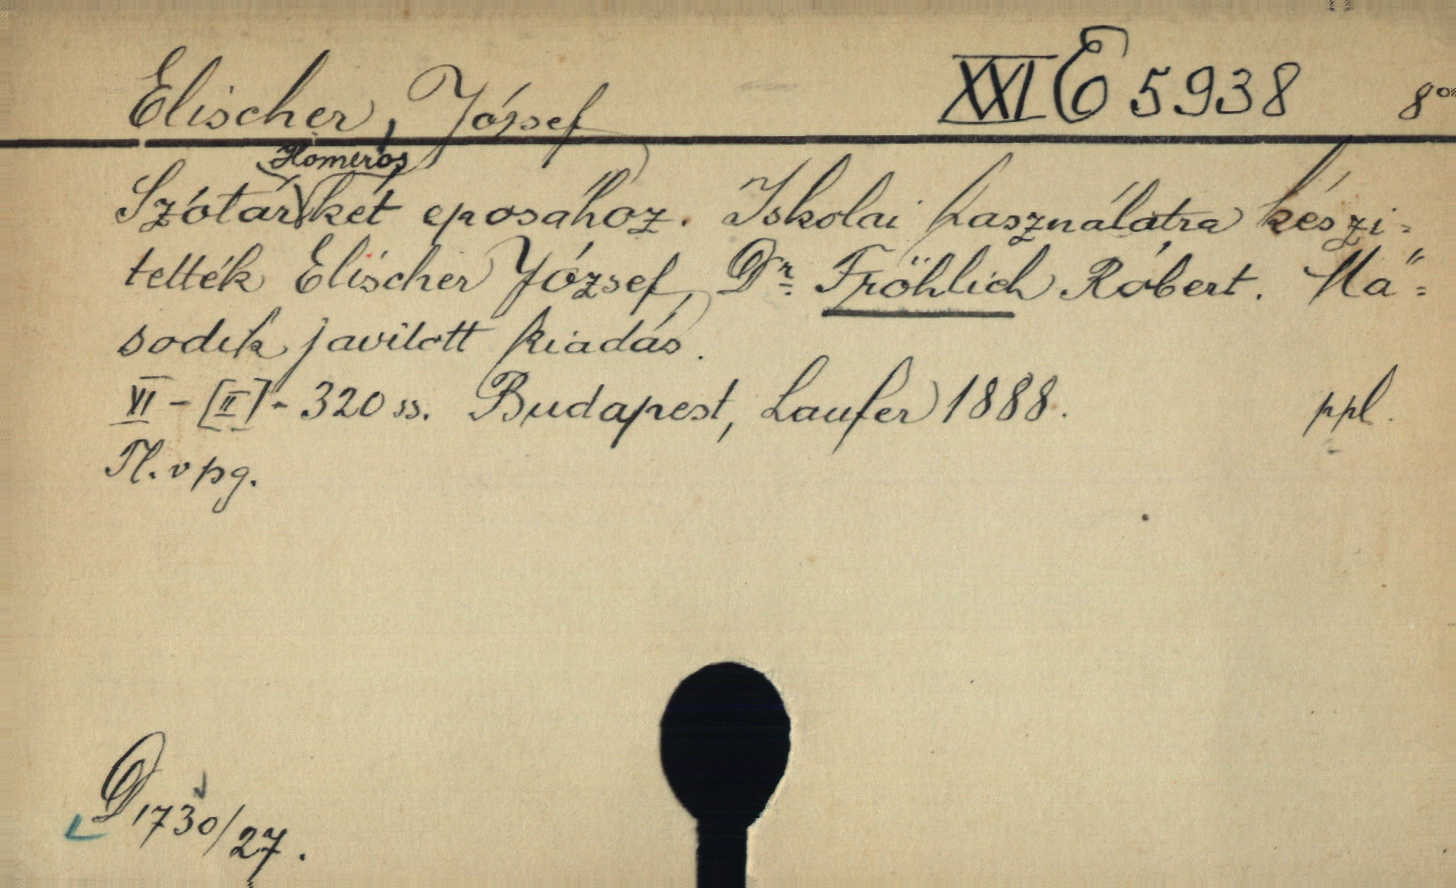 Elischer, József XXI E 5938 8°
Homeros
Szótár két eposához. Iskolai használatra készi=
tették Elischer József, Dr. Fröhlich Róbert. Má=
sodik javitott kiadás.
VI - [II] - 320 ss. Budapest, Laufer 1888. ppl.
Tl. v pg.
D 1730/27.